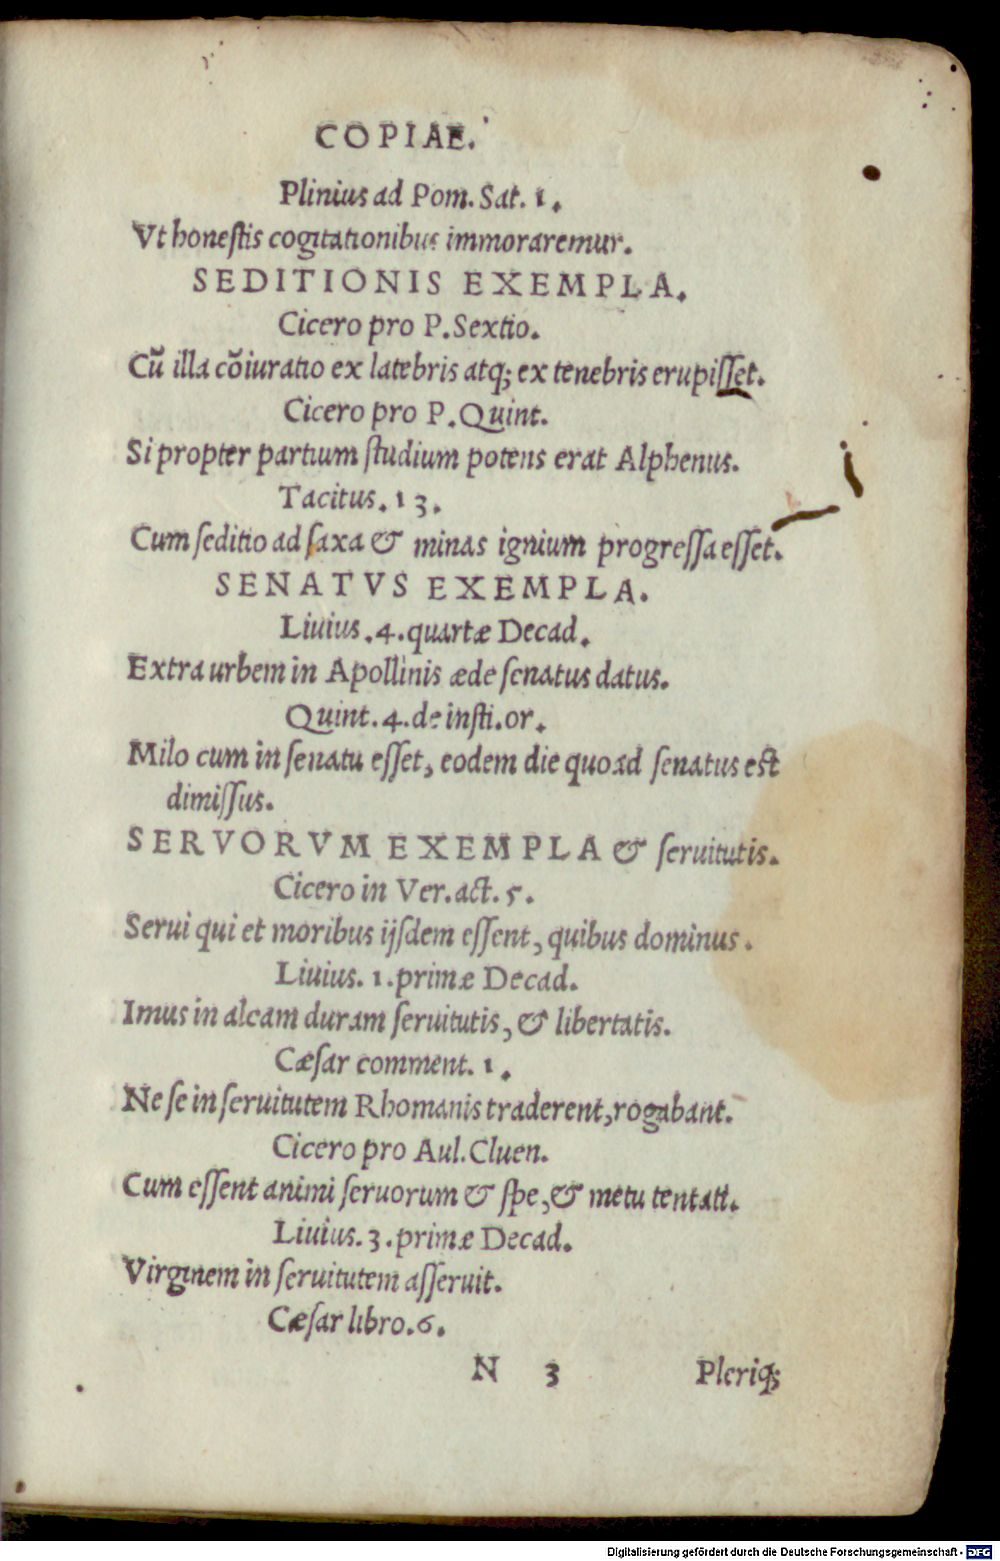 COPIAE.
Plinius ad Pom. Sat. 1.
Vt honeſtis cogitationibus immoraremur.
SEDITIONIS EXEMPLA.
Cicero pro P. Sextio.
Cũ illa cõiuratio ex latebris atq; ex tenebris erupiſſet.
Cicero pro P. Quint.
Si propter partium ſtudium potens erat Alphenus.
Tacitus. 13.
Cum ſeditio ad ſaxa & minas ignium progreſſa eſſet.
SENATVS EXEMPLA.
Liuius. 4. quartæ Decad.
Extra urbem in Apollinis æde ſenatus datus.
Quint. 4. de inſti. or.
Milo cum in ſenatu eſſet, eodem die quoad ſenatus est
dimiſſus.
SERVORVM EXEMPLA & ſeruitutis.
Cicero in Ver. act. 5.
Serui qui et moribus ijſdem eſſent, quibus dominus.
Liuius. 1. primæ Decad.
Imus in aleam duram ſeruitutis, & libertatis.
Cæſar comment. 1.
Ne ſe in ſeruitutem Rhomanis traderent, rogabant.
Cicero pro Aul. Cluen.
Cum eſſent animi ſeruorum & ſpe, & metu tentati.
Liuius. 3. primæ Decad.
Virginem in ſeruitutem aſſeruit.
Cæſar libro. 6.
N 3 Pleriq;
Digitalisierung gefördert durch die Deutsche Forschungsgemeinschaft - DFG